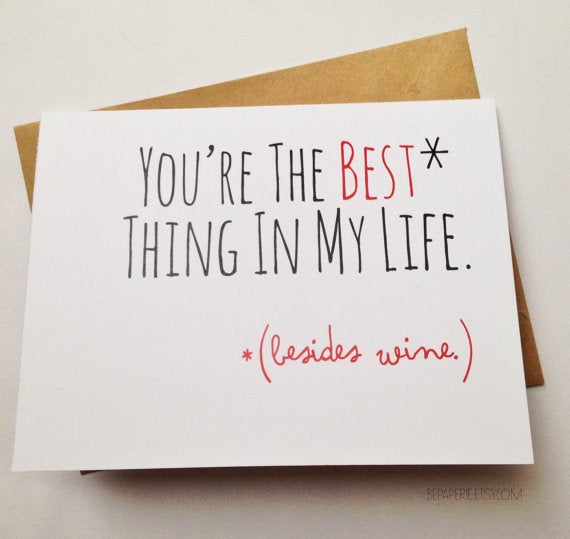 YOU'RE THE BEST*
THING IN MY LIFE.
*(besides wine.)
BEPAPERIE.ETSY.COM